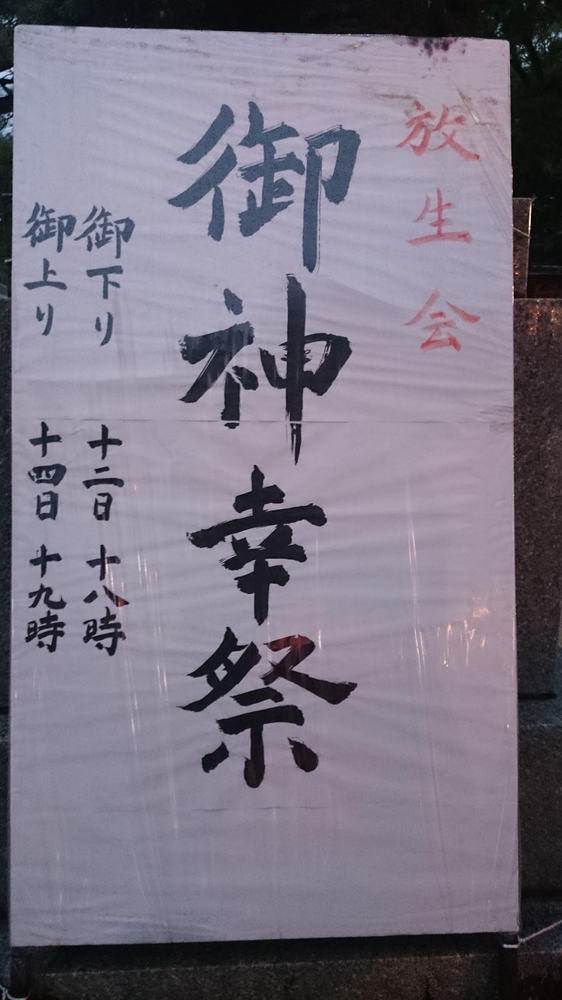 放生会
御神幸祭
御下り 十二日 十八時
御上り 十四日 十九時